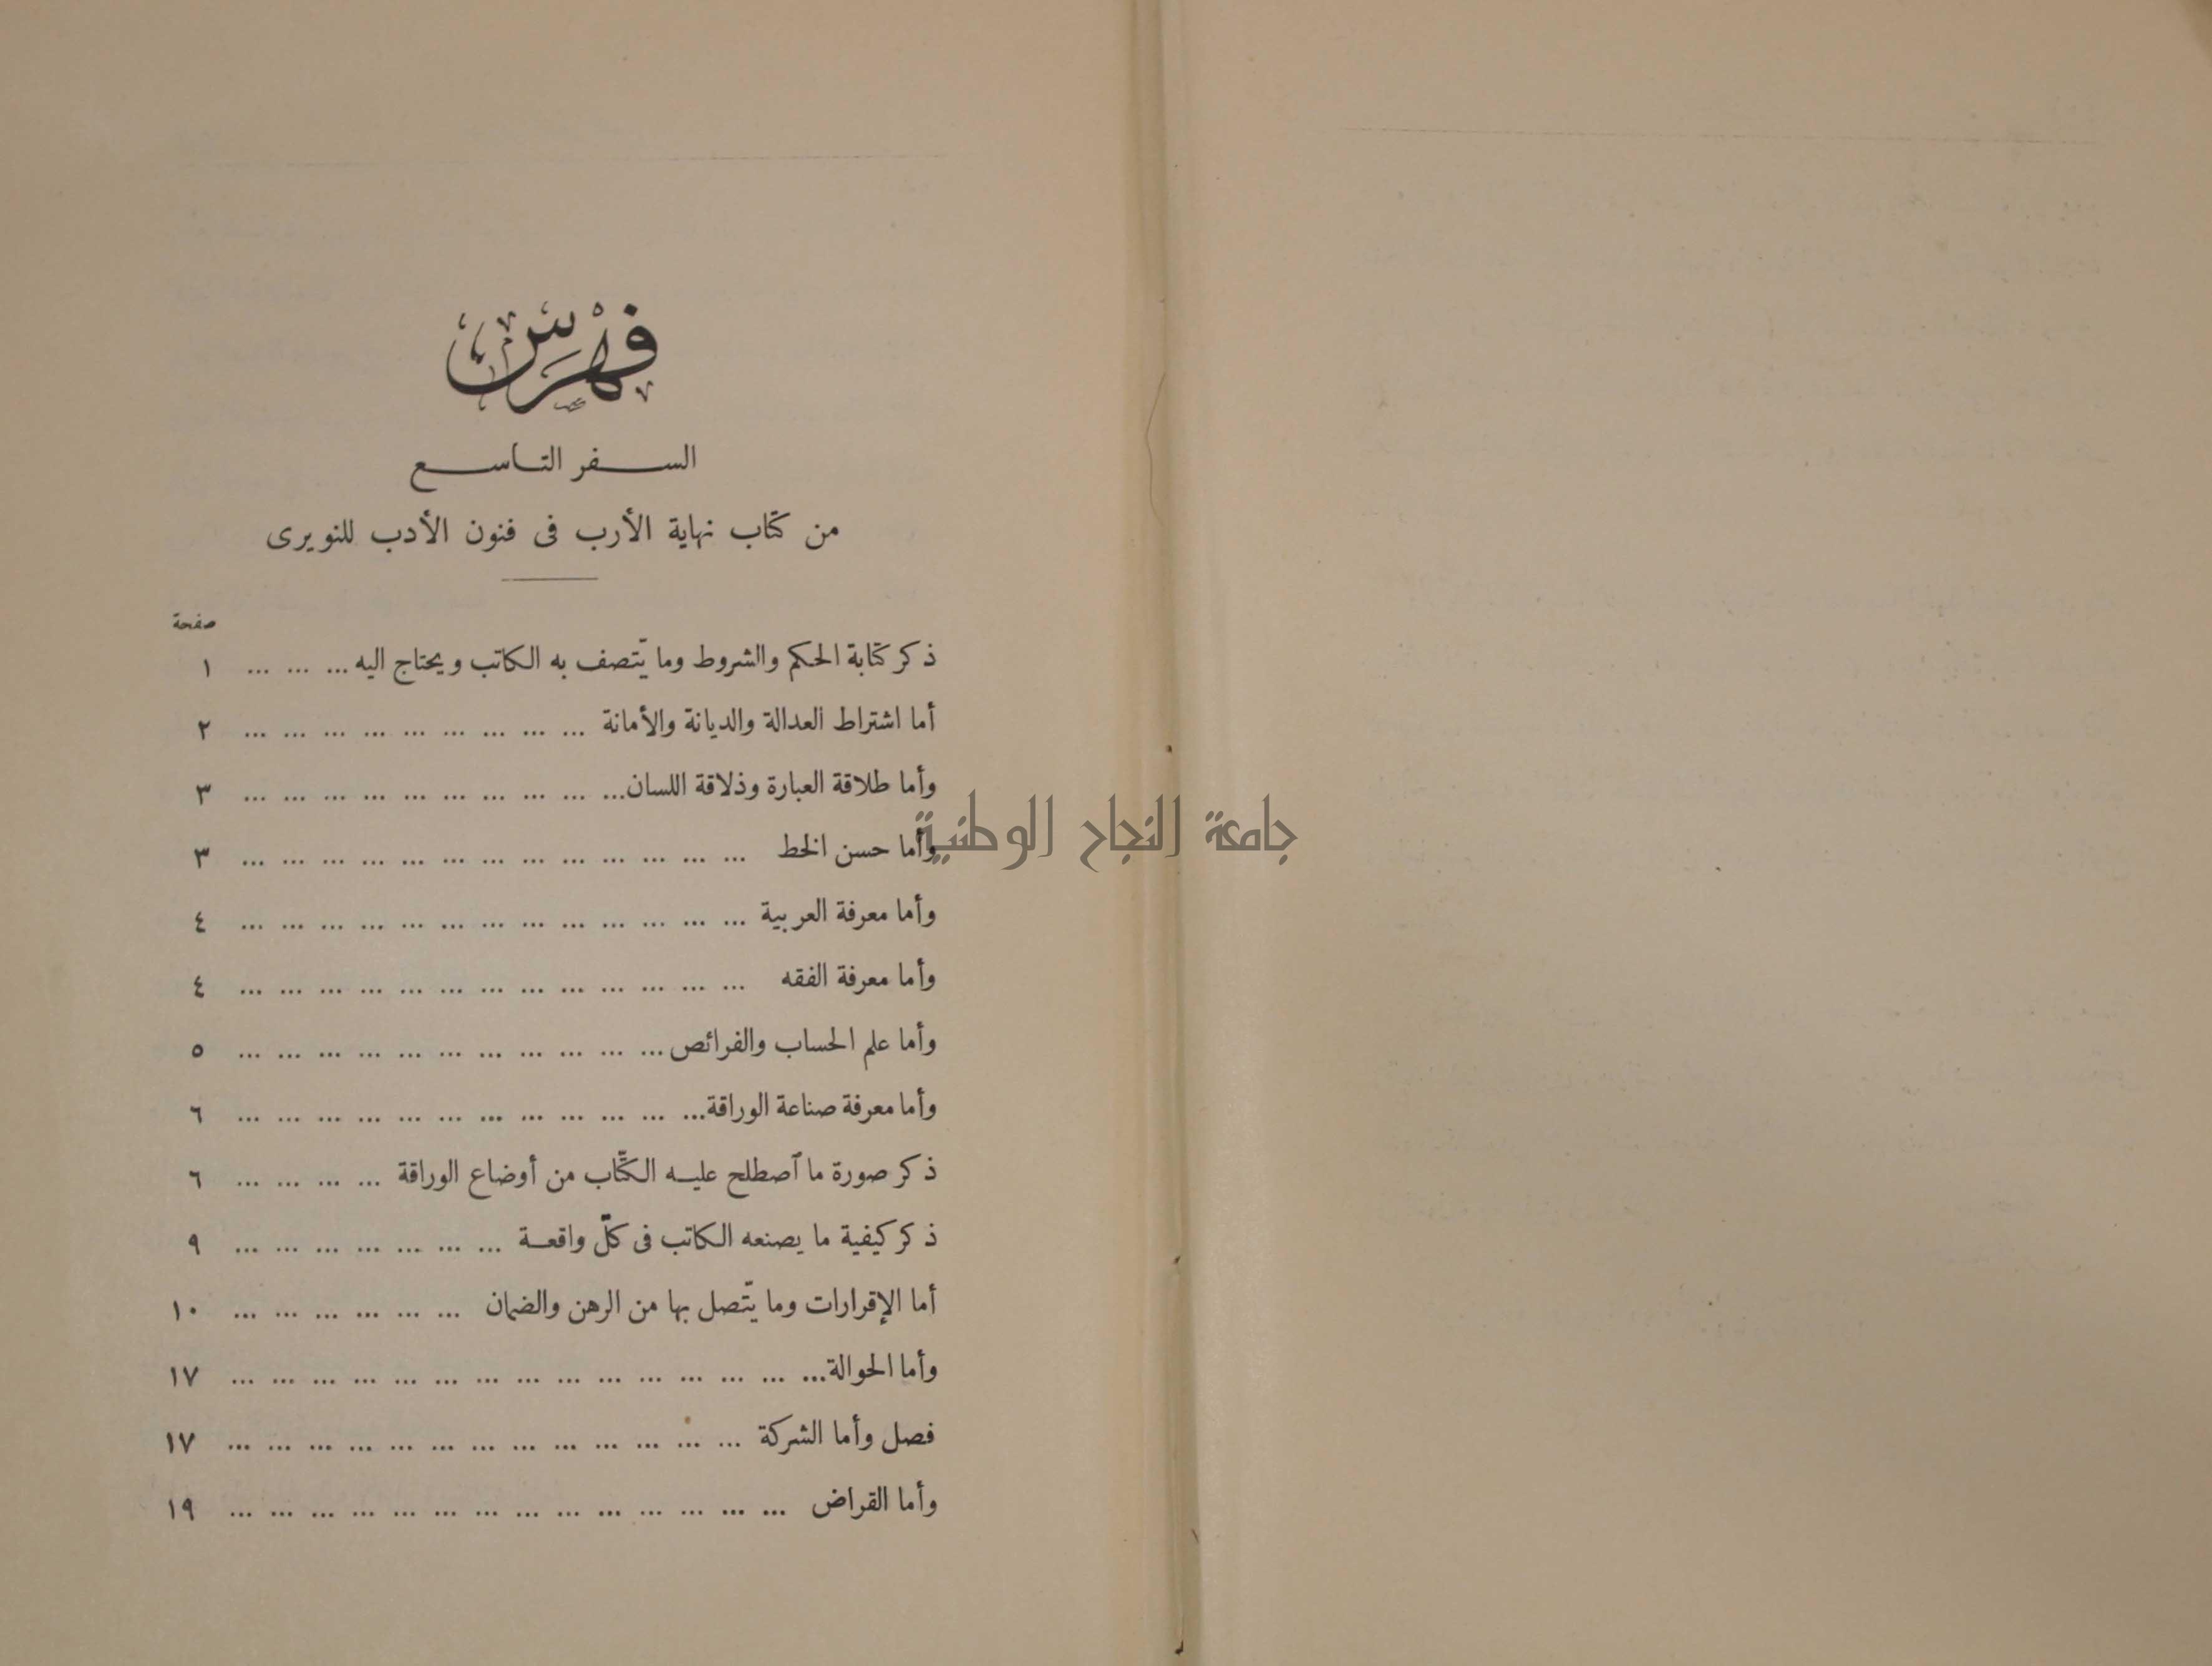 فهرس
السفر التاسع
من كتاب نهاية الأرب فى فنون الأدب للنويرى
صفحة
ذكر كتابة الحكم والشروط وما يتّصف به الكاتب ويحتاج اليه ... ... ... ١
أما اشتراط العدالة والديانة والأمانة ... ... ... ... ... ... ... ... ... ٢
وأما طلاقة العبارة وذلاقة اللسان... ... ... ... ... ... ... ... ... ... ٣
وأما حسن الخط ... ... ... ... ... ... ... ... ... ... ... ... ... ٣
جامعة النجاح الوطنية
وأما معرفة العربية ... ... ... ... ... ... ... ... ... ... ... ... ... ٤
وأما معرفة الفقه ... ... ... ... ... ... ... ... ... ... ... ... ... ٤
وأما علم الحساب والفرائص ... ... ... ... ... ... ... ... ... ... ... ٥
وأما معرفة صناعة الوراقة... ... ... ... ... ... ... ... ... ... ... ... ٦
ذكر صورة ما آصطلح عليه الكتّاب من أوضاع الوراقة ... ... ... ... ٦
ذكر كيفية ما يصنعه الكاتب فى كلّ واقعة ... ... ... ... ... ... ... ٩
أما الإقرارات وما يتّصل بها من الرهن والضمان ... ... ... ... ... ... ١٠
وأما الحوالة... ... ... ... ... ... ... ... ... ... ... ... ... ... ... ١٧
فصل وأما الشركة ... ... ... ... ... ... ... ... ... ... ... ... ... ١٧
وأما القراض ... ... ... ... ... ... ... ... ... ... ... ... ... ... ١٩